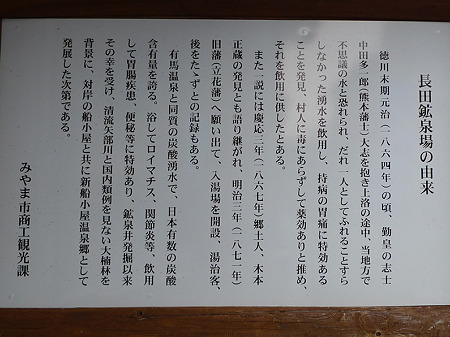 長田鉱泉場の由来
徳川末期元治(一八六四年)の頃、勤皇の志士
中田多一郎(熊本藩士)大志を抱き上洛の途中、当地方で
不思議の水と恐れられ、だれ一人としてふれることすら
しなかった湧水を飲用し、持病の胃痛に特効ある
ことを発見、村人に毒にあらずして薬効ありと推め、
それを飲用に供したとある。
また一説には慶応三年(一八六七年)郷士人、木本
正蔵の発見とも語り継がれ、明治三年(一八七二年)
旧藩(立花藩)へ願い出て、入湯場を開設、湯治客、
後をたゝずとの記録もある。
有馬温泉と同質の炭酸湧水で、日本有数の炭酸
含有量を誇る。浴してロイマチス、関節炎等、飲用
して胃腸疾患、便秘等に特効あり、鉱泉井発掘以来
その幸を受け、清流矢部川と国内類例を見ない大楠林を
背景に、対岸の船小屋と共に新船小屋温泉郷として
発展した次第である。
みやま市商工観光課